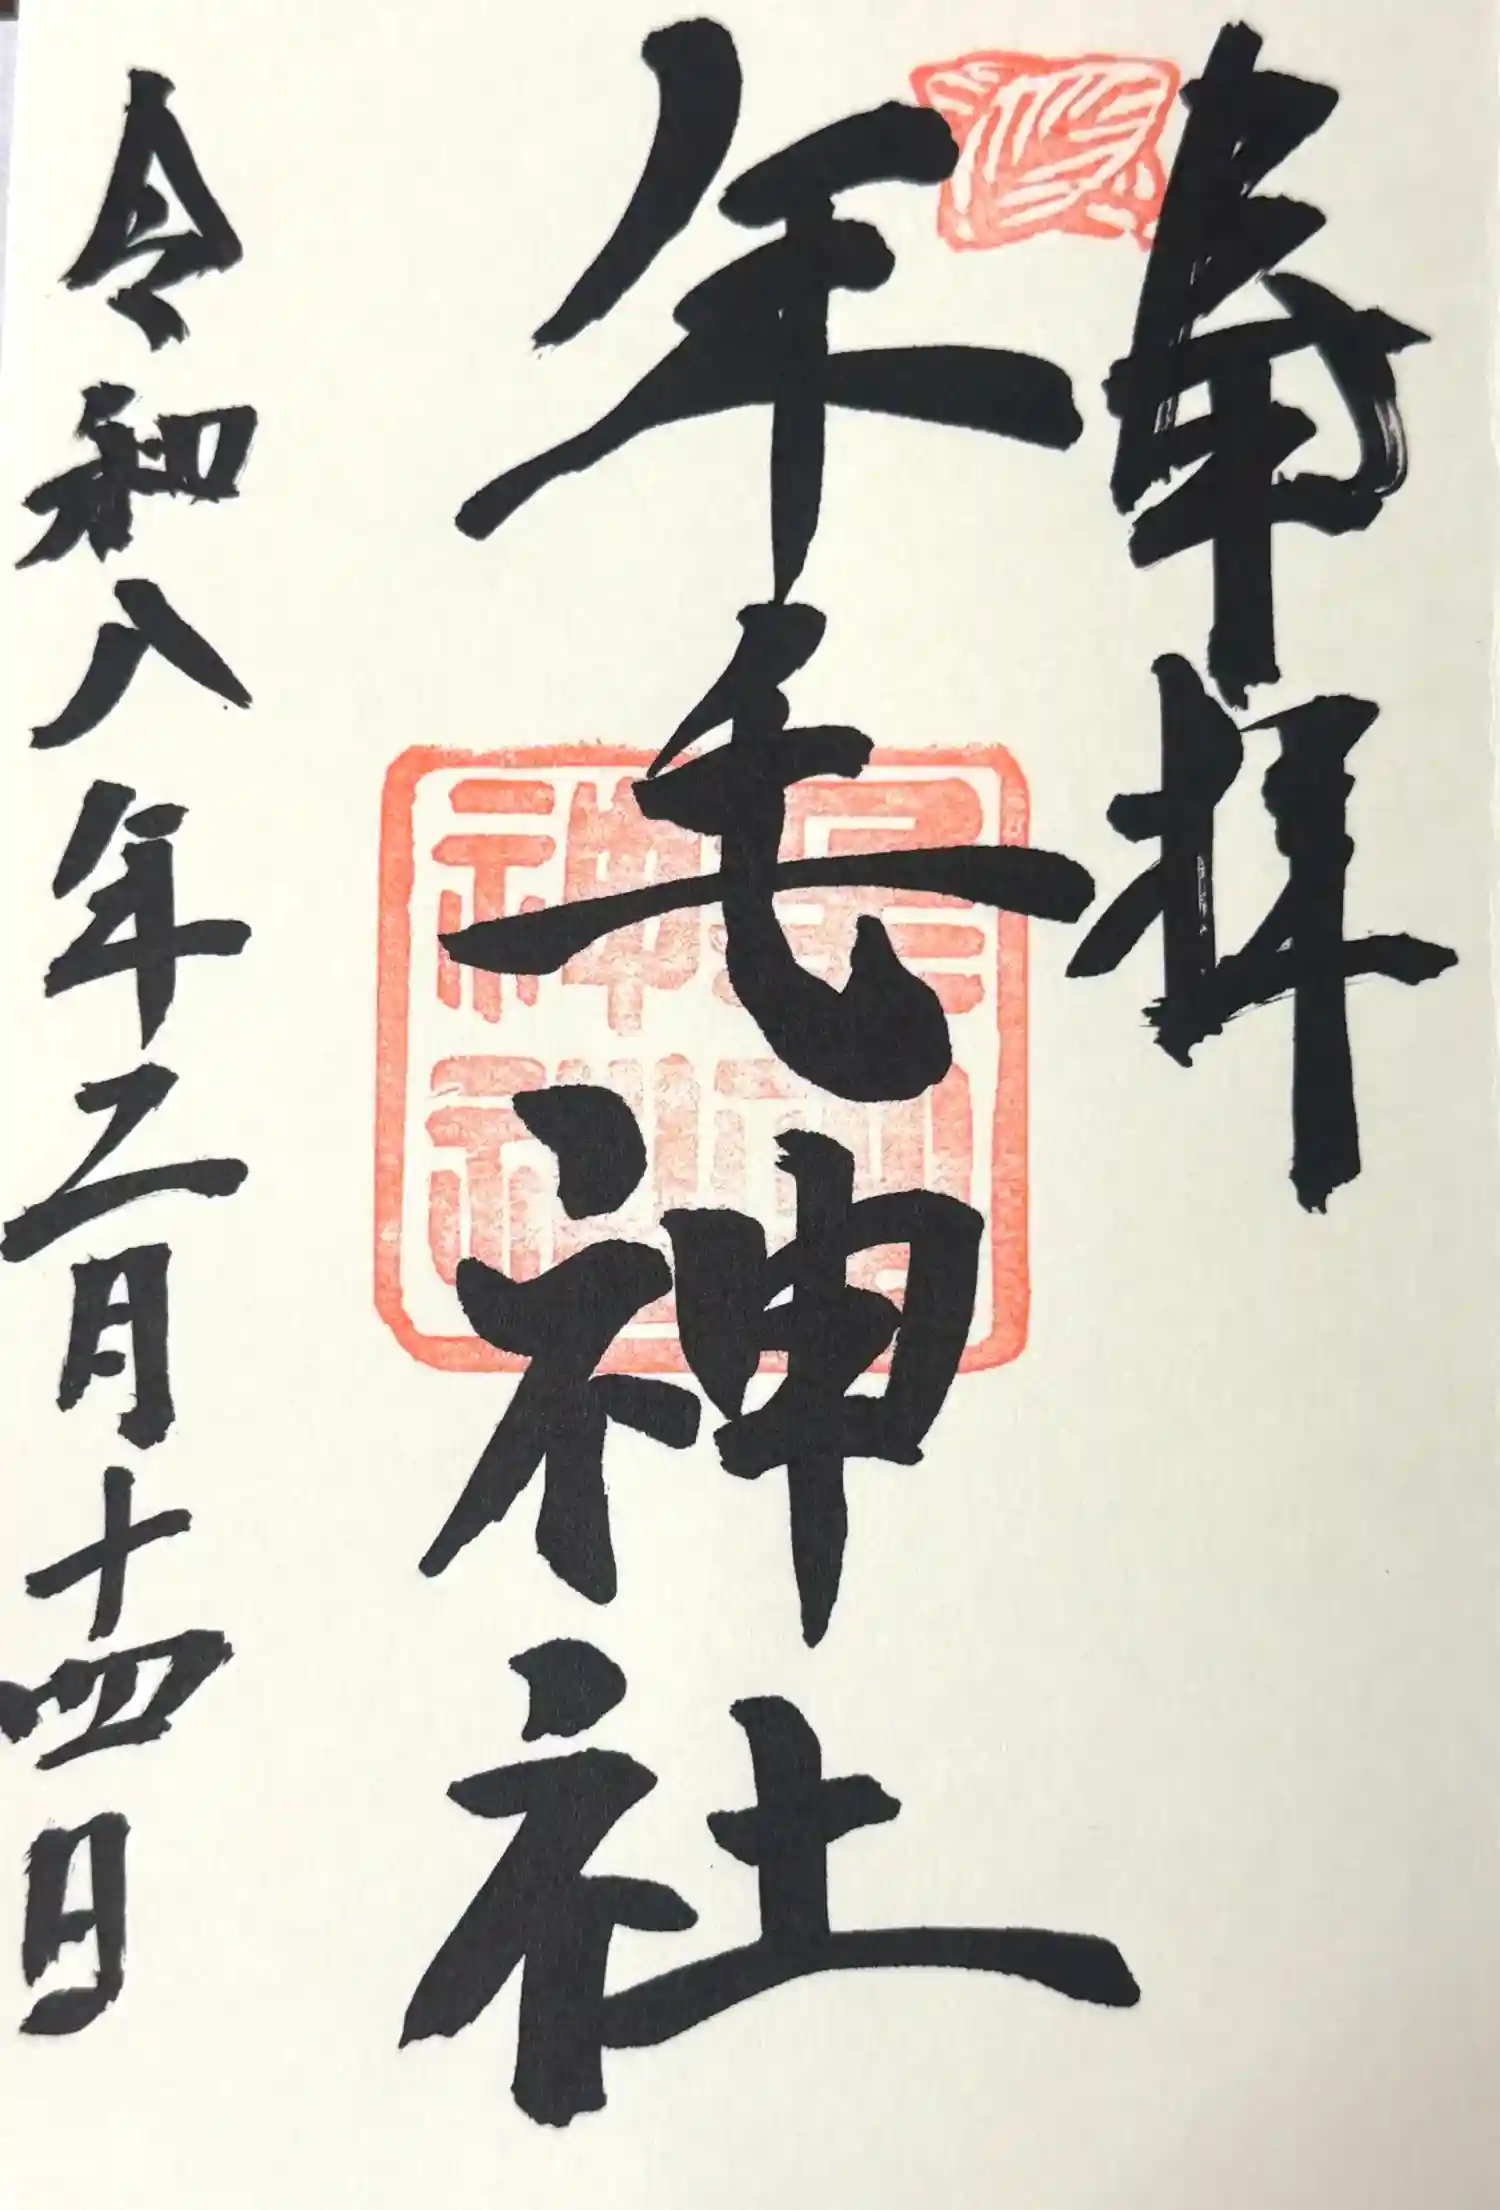 奉拝
年毛神社
令和八年二月十四日